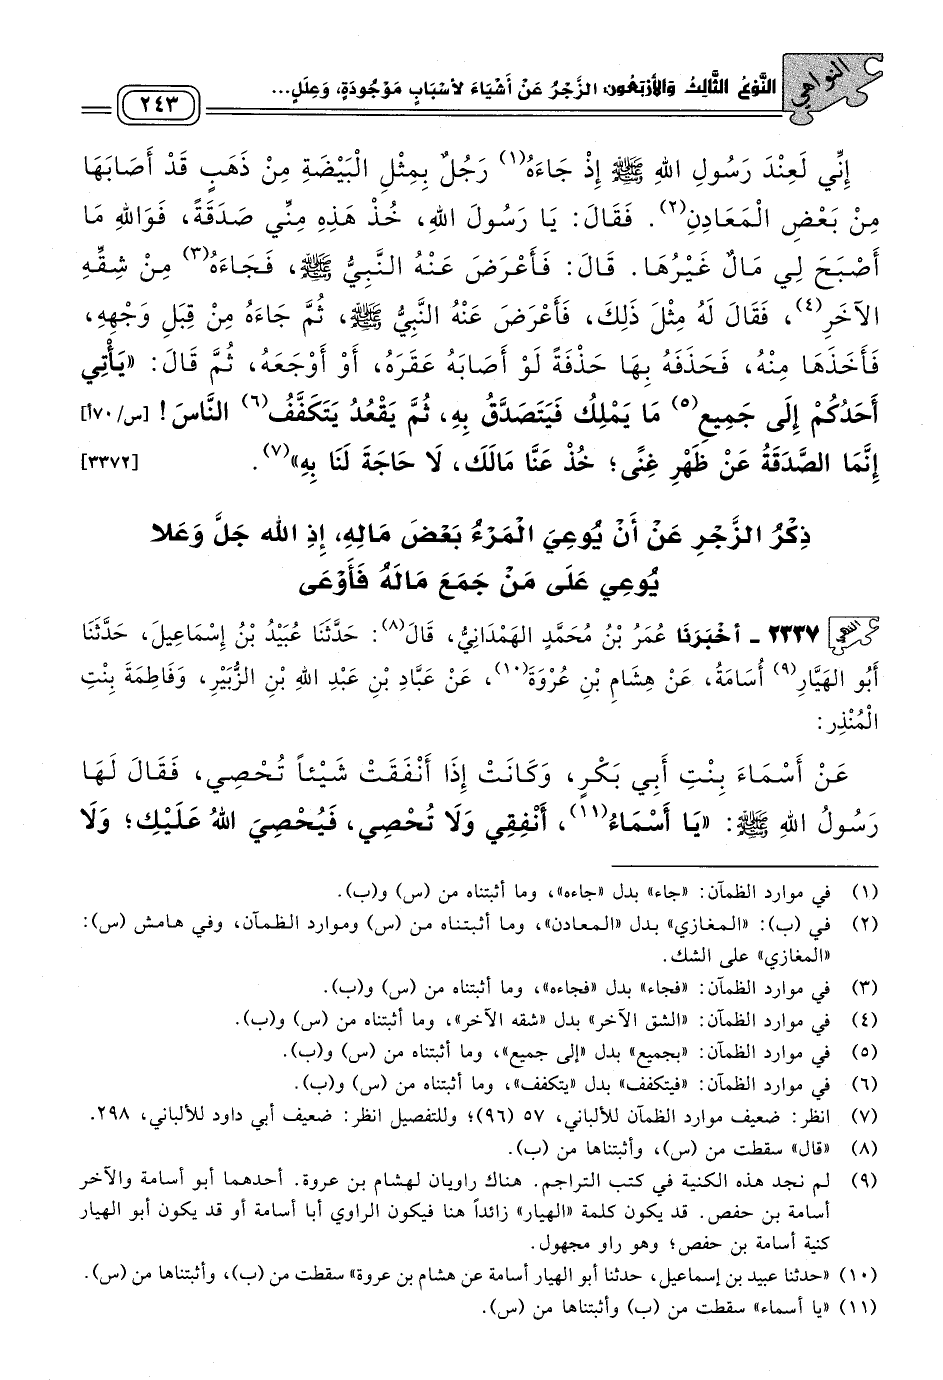 النواهي
النَّوْعُ الثَّالِثُ وَالأَرْبَعُون: الزَّجْرُ عَنْ أَشْيَاءَ لأَسْبَابٍ مَوْجُودَةٍ، وَعِلَلٍ...
٢٤٣
إِنِّي لَعِنْدَ رَسُولِ اللهِ ﷺ إِذْ جَاءَهُ(١) رَجُلٌ بِمِثْلِ الْبَيْضَةِ مِنْ ذَهَبٍ قَدْ أَصَابَهَا
مِنْ بَعْضِ الْمَعَادِنِ(٢). فَقَالَ: يَا رَسُولَ اللهِ، خُذْ هَذِهِ مِنِّي صَدَقَةً، فَوَاللهِ مَا
أَصْبَحَ لِي مَالٌ غَيْرُهَا. قَالَ: فَأَعْرَضَ عَنْهُ النَّبِيُّ ﷺ، فَجَاءَهُ(٣) مِنْ شِقِّهِ
الآخَرِ(٤)، فَقَالَ لَهُ مِثْلَ ذَلِكَ، فَأَعْرَضَ عَنْهُ النَّبِيُّ ﷺ، ثُمَّ جَاءَهُ مِنْ قِبَلِ وَجْهِهِ،
فَأَخَذَهَا مِنْهُ، فَحَذَفَهُ بِهَا حَذْفَةً لَوْ أَصَابَهُ عَقَرَهُ، أَوْ أَوْجَعَهُ، ثُمَّ قَالَ: «يَأْتِي
أَحَدُكُمْ إِلَى جَمِيعِ(٥) مَا يَمْلِكُ فَيَتَصَدَّقُ بِهِ، ثُمَّ يَقْعُدُ يَتَكَفَّفُ(٦) النَّاسَ! [س/١٧٠أ]
إِنَّمَا الصَّدَقَةُ عَنْ ظَهْرِ غِنًى؛ خُذْ عَنَّا مَالَكَ، لَا حَاجَةَ لَنَا بِهِ»(٧). [٣٣٧٢]
ذِكْرُ الزَّجْرِ عَنْ أَنْ يُوعِيَ الْمَرْءُ بَعْضَ مَالِهِ، إِذِ الله جَلَّ وَعَلا
يُوعِي عَلَى مَنْ جَمَعَ مَالَهُ فَأَوْعَى
٢٣٣٧ - أخْبَرَنَا عُمَرُ بْنُ مُحَمَّدٍ الهَمْدَانِيُّ، قَالَ(٨): حَدَّثَنَا عُبَيْدُ بْنُ إِسْمَاعِيلَ، حَدَّثَنَا
أَبُو الهَيَّارِ(٩) أُسَامَةُ، عَنْ هِشَامِ بْنِ عُرْوَةَ(١٠)، عَنْ عَبَّادِ بْنِ عَبْدِ اللهِ بْنِ الزُّبَيْرِ، وَفَاطِمَةَ بِنْتِ
الْمُنْذِرِ:
عَنْ أَسْمَاءَ بِنْتِ أَبِي بَكْرٍ، وَكَانَتْ إِذَا أَنْفَقَتْ شَيْئاً تُحْصِي، فَقَالَ لَهَا
رَسُولُ اللهِ ﷺ: «يَا أَسْمَاءُ(١١)، أَنْفِقِي وَلَا تُحْصِي، فَيُحْصِيَ اللهُ عَلَيْكِ؛ وَلَا
(١) في موارد الظمآن: «جاء» بدل «جاءه»، وما أثبتناه من (س) و(ب).
(٢) في (ب): «المغازي» بدل «المعادن»، وما أثبتناه من (س) وموارد الظمآن، وفي هامش (س):
«المغازي» على الشك.
(٣) في موارد الظمآن: «فجاء» بدل «فجاءه»، وما أثبتناه من (س) و(ب).
(٤) في موارد الظمآن: «الشق الآخر» بدل «شقه الآخر»، وما أثبتناه من (س) و(ب).
(٥) في موارد الظمآن: «بجميع» بدل «إلى جميع»، وما أثبتناه من (س) و(ب).
(٦) في موارد الظمآن: «فيتكفف» بدل «يتكفف»، وما أثبتناه من (س) و(ب).
(٧) انظر: ضعيف موارد الظمآن للألباني، ٥٧ (٩٦)؛ وللتفصيل انظر: ضعيف أبي داود للألباني، ٢٩٨.
(٨) «قال» سقطت من (س)، وأثبتناها من (ب).
(٩) لم نجد هذه الكنية في كتب التراجم. هناك راويان لهشام بن عروة. أحدهما أبو أسامة والآخر
أسامة بن حفص. قد يكون كلمة «الهيار» زائداً هنا فيكون الراوي أبا أسامة أو قد يكون أبو الهيار
كنية أسامة بن حفص؛ وهو راو مجهول.
(١٠) «حدثنا عبيد بن إسماعيل، حدثنا أبو الهيار أسامة عن هشام بن عروة» سقطت من (ب)، وأثبتناها من (س).
(١١) «يا أسماء» سقطت من (ب) وأثبتناها من (س).